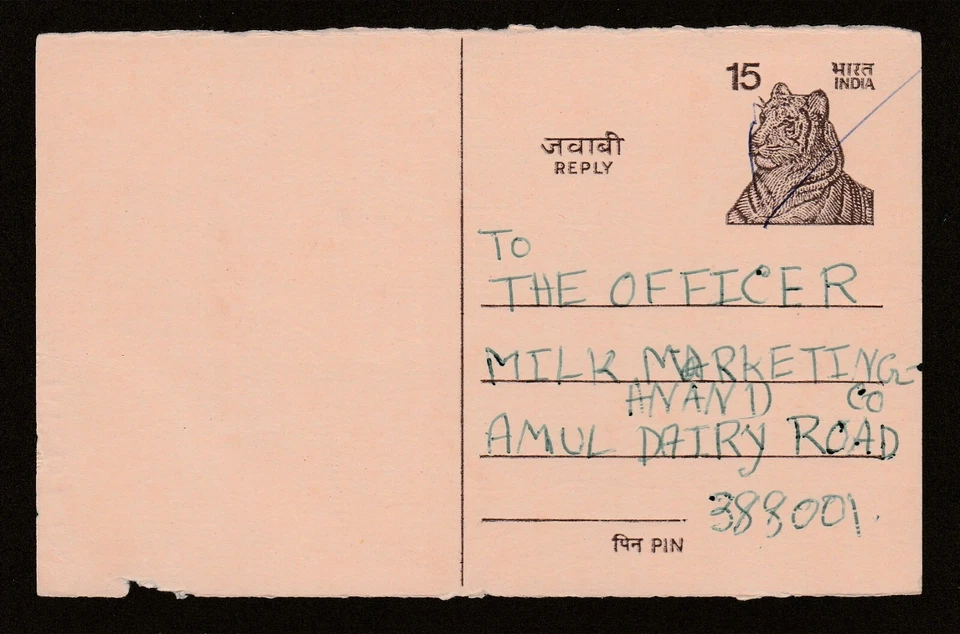 15 भारत
INDIA
जवाबी
REPLY
TO
THE OFFICER
MILK MARKETING
ANAND CO
AMUL DAIRY ROAD
388001.
पिन PIN